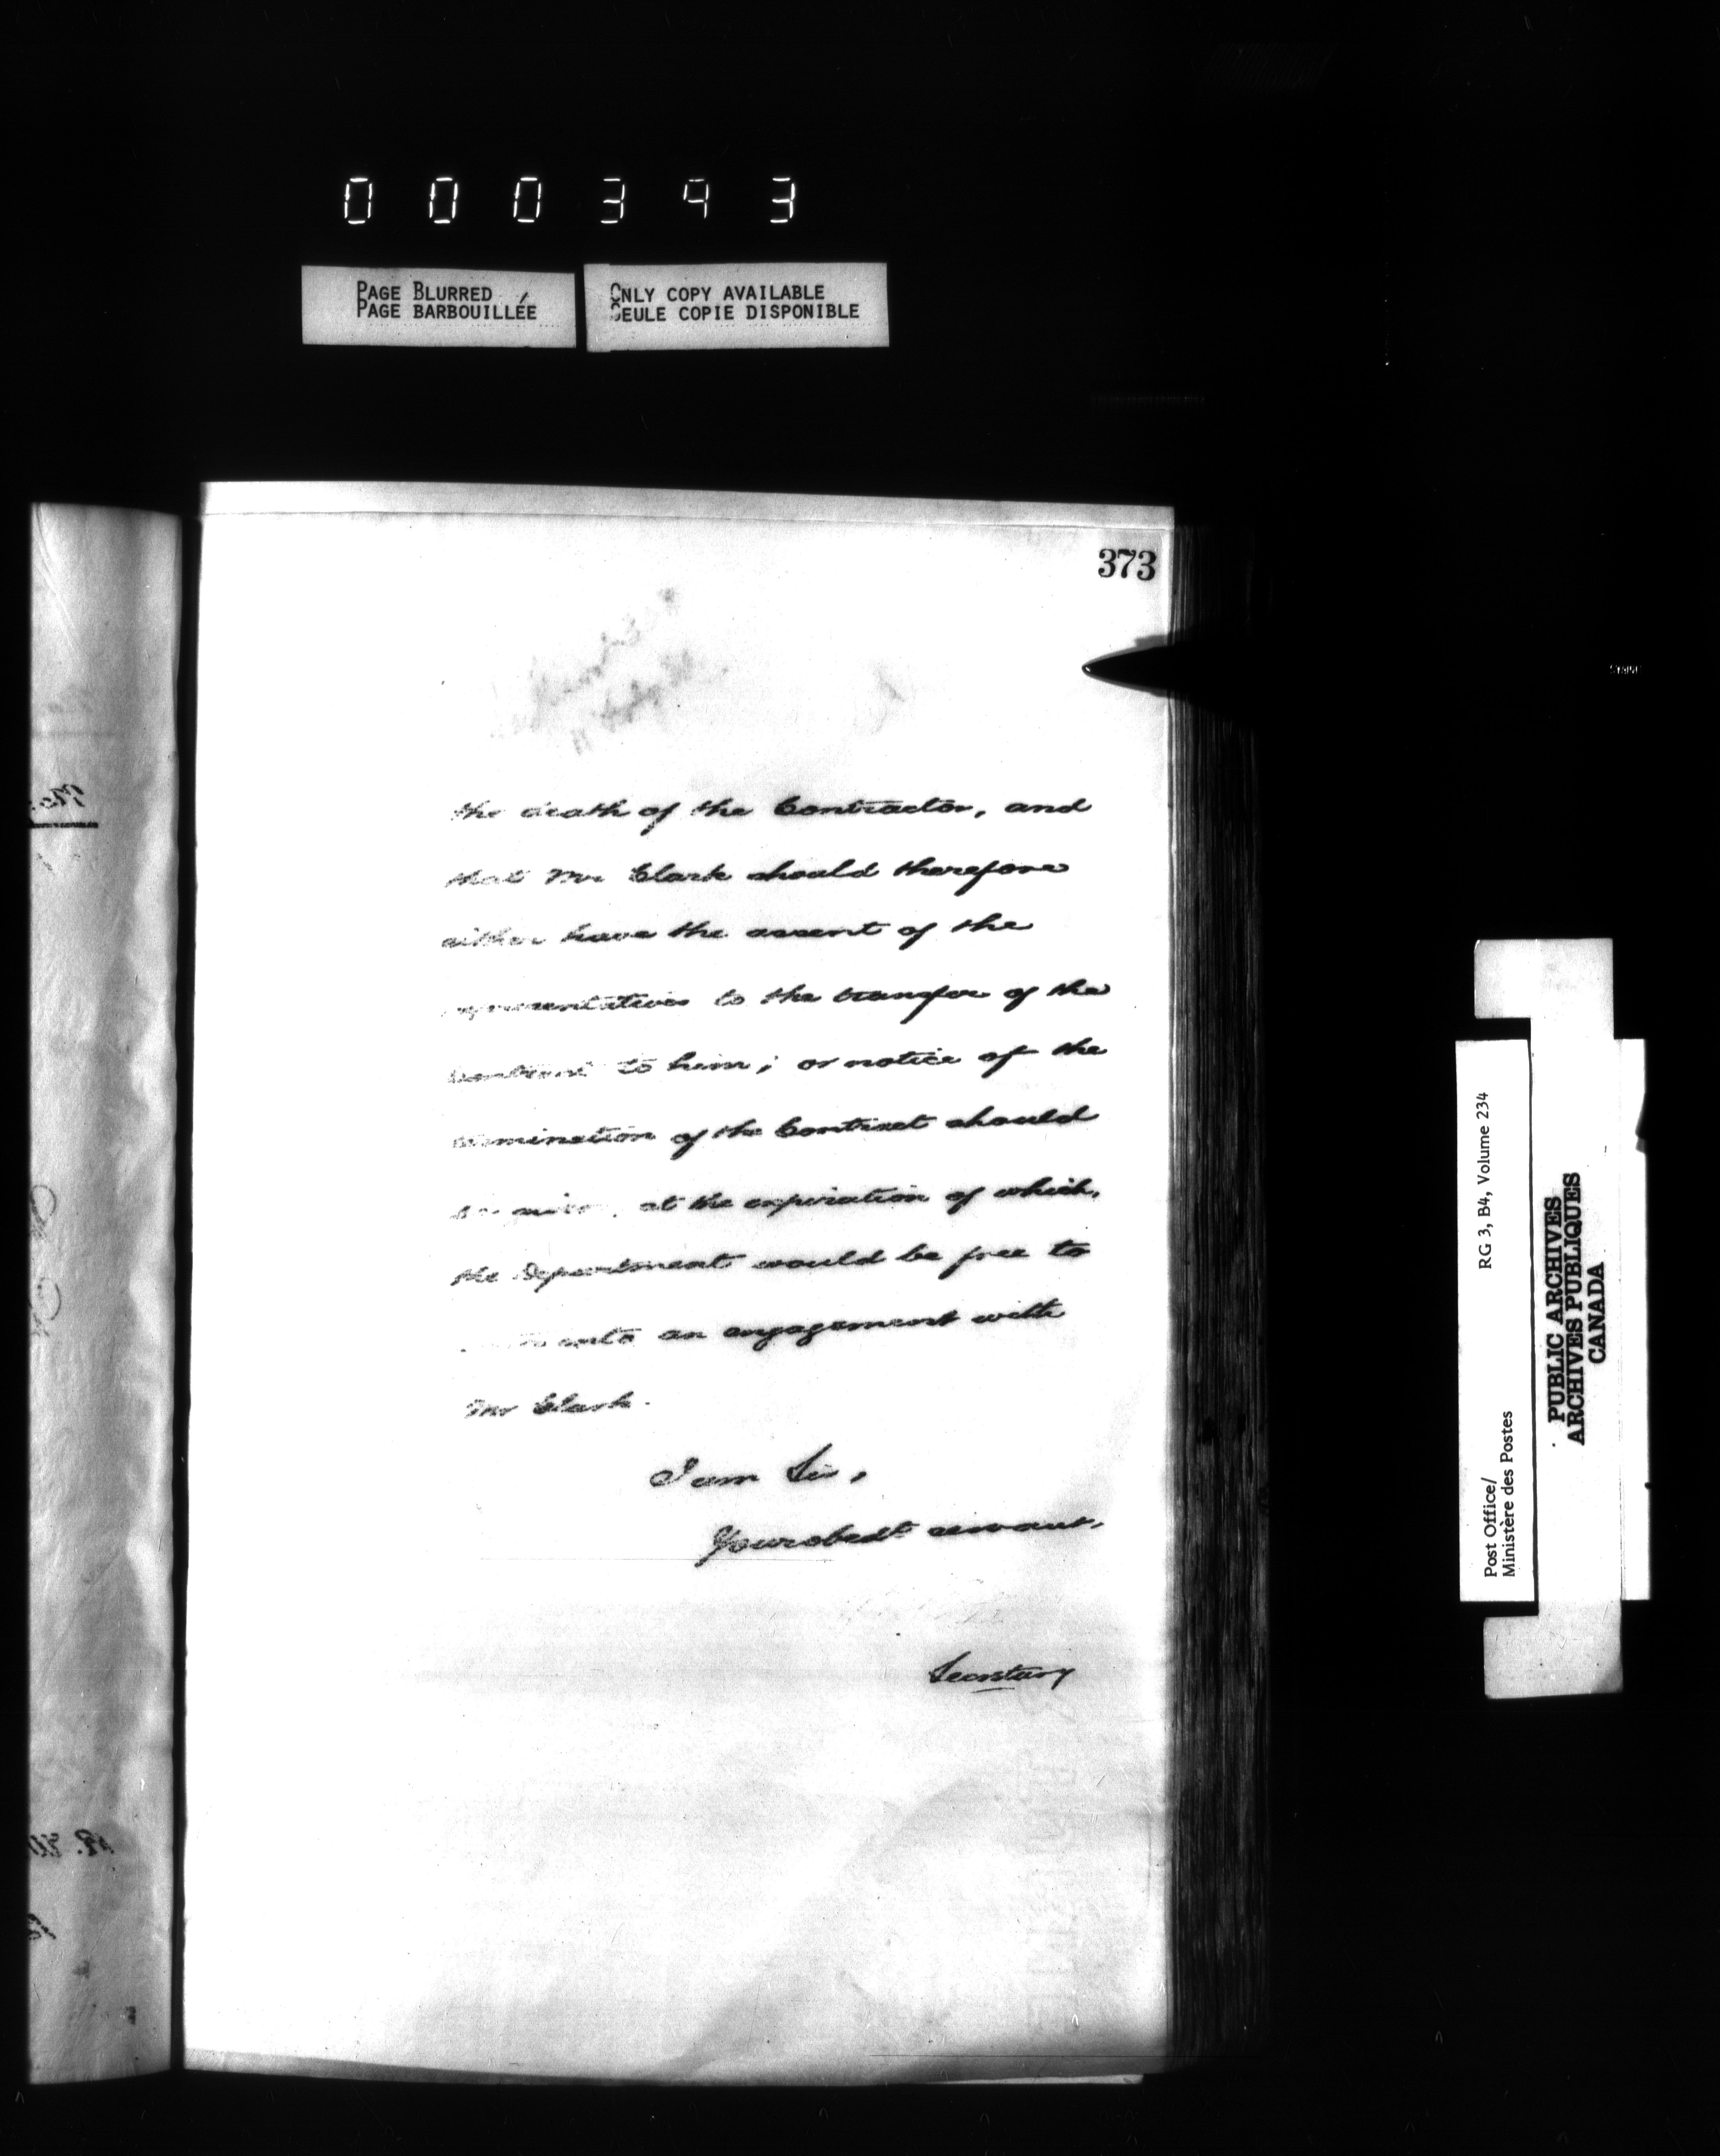 000393
PAGE BLURRED
PAGE BARBOUILLÉE
ONLY COPY AVAILABLE
SEULE COPIE DISPONIBLE
373
the death of the Contractor, and
that Mr Clark should therefore
either have the assent of the
representatives to the transfer of the
Contract to him; or notice of the
termination of the Contract should
be given, at the expiration of which,
the Department would be free to
into an engagement with
Mr Clark.
I am Sir,
Your obedt servant,
Secretary
Post Office/
Ministère des Postes
RG 3, B4, Volume 234
PUBLIC ARCHIVES
ARCHIVES PUBLIQUES
CANADA